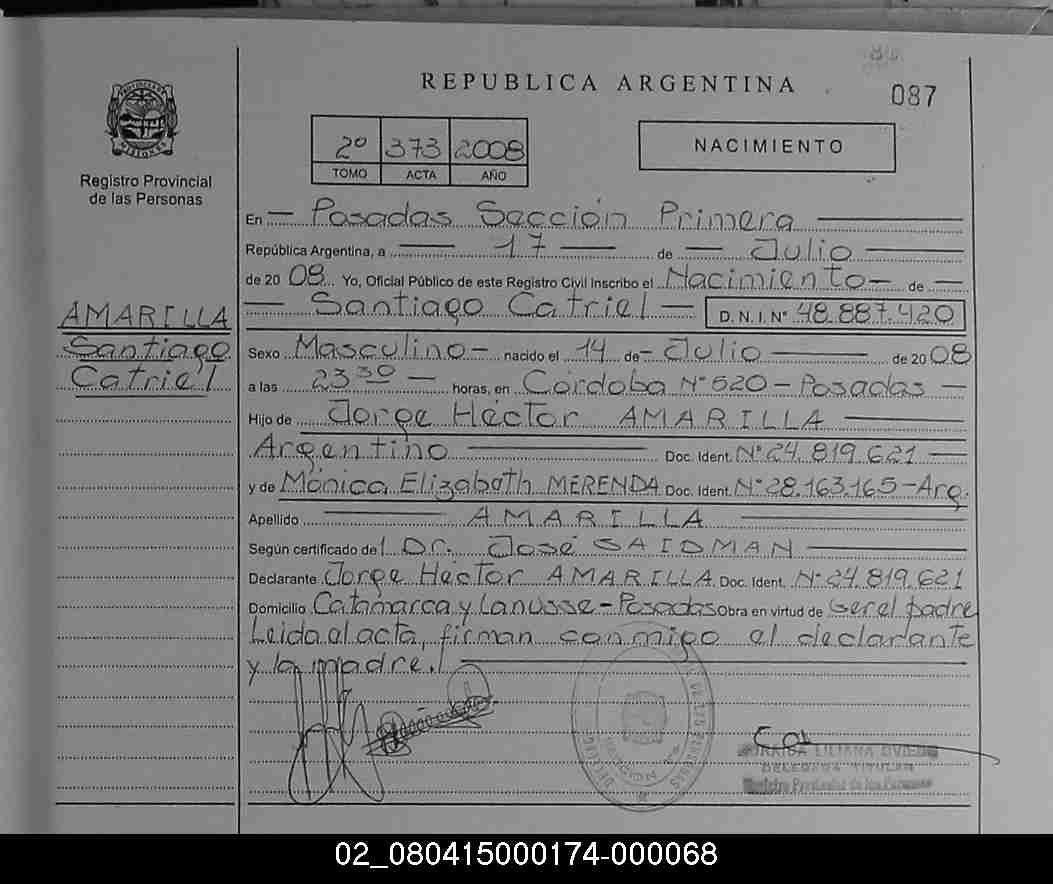 REPUBLICA ARGENTINA
087
2º 373 2008
TOMO ACTA AÑO
NACIMIENTO
PROVINCIA DE MISIONES
Registro Provincial
de las Personas
AMARILLA
Santiago
Catriel
En — Posadas Sección Primera
República Argentina, a — 17 — de — Julio
de 20 08 Yo, Oficial Público de este Registro Civil Inscribo el Nacimiento — de —
— Santiago Catriel — D. N. I. Nº 48.887.420
Sexo Masculino — nacido el 14 de — Julio — de 20 08
a las 23 30 — horas, en Córdoba Nº 520 — Posadas —
Hijo de Jorge Héctor AMARILLA
Argentino — Doc. Ident. Nº 24.819.621 —
y de Mónica Elizabeth MERENDA Doc. Ident. Nº 28.163.165 — Arg.
Apellido — AMARILLA —
Según certificado del Dr. José SAIDMAN —
Declarante Jorge Héctor AMARILLA Doc. Ident. Nº 24.819.621
Domicilio Catamarca y Lanusse — Posadas Obra en virtud de ser el padre
Leida el acta, firman conmigo el declarante
y la madre.
LILIANA OVIEDO
DELEGADA TITULAR
Registro Provincial de las Personas
02_080415000174-000068